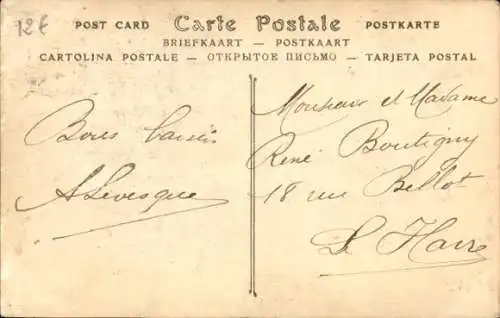 12€
POST CARD Carte Postale POSTKARTE
BRIEFKAART — POSTKAART
CARTOLINA POSTALE — ОТКРЫТОЕ ПИСЬМО — TARJETA POSTAL
Bons baisers
A Levesque
Monsieur et Madame
René Boutigny
18 rue Bellot
Le Havre